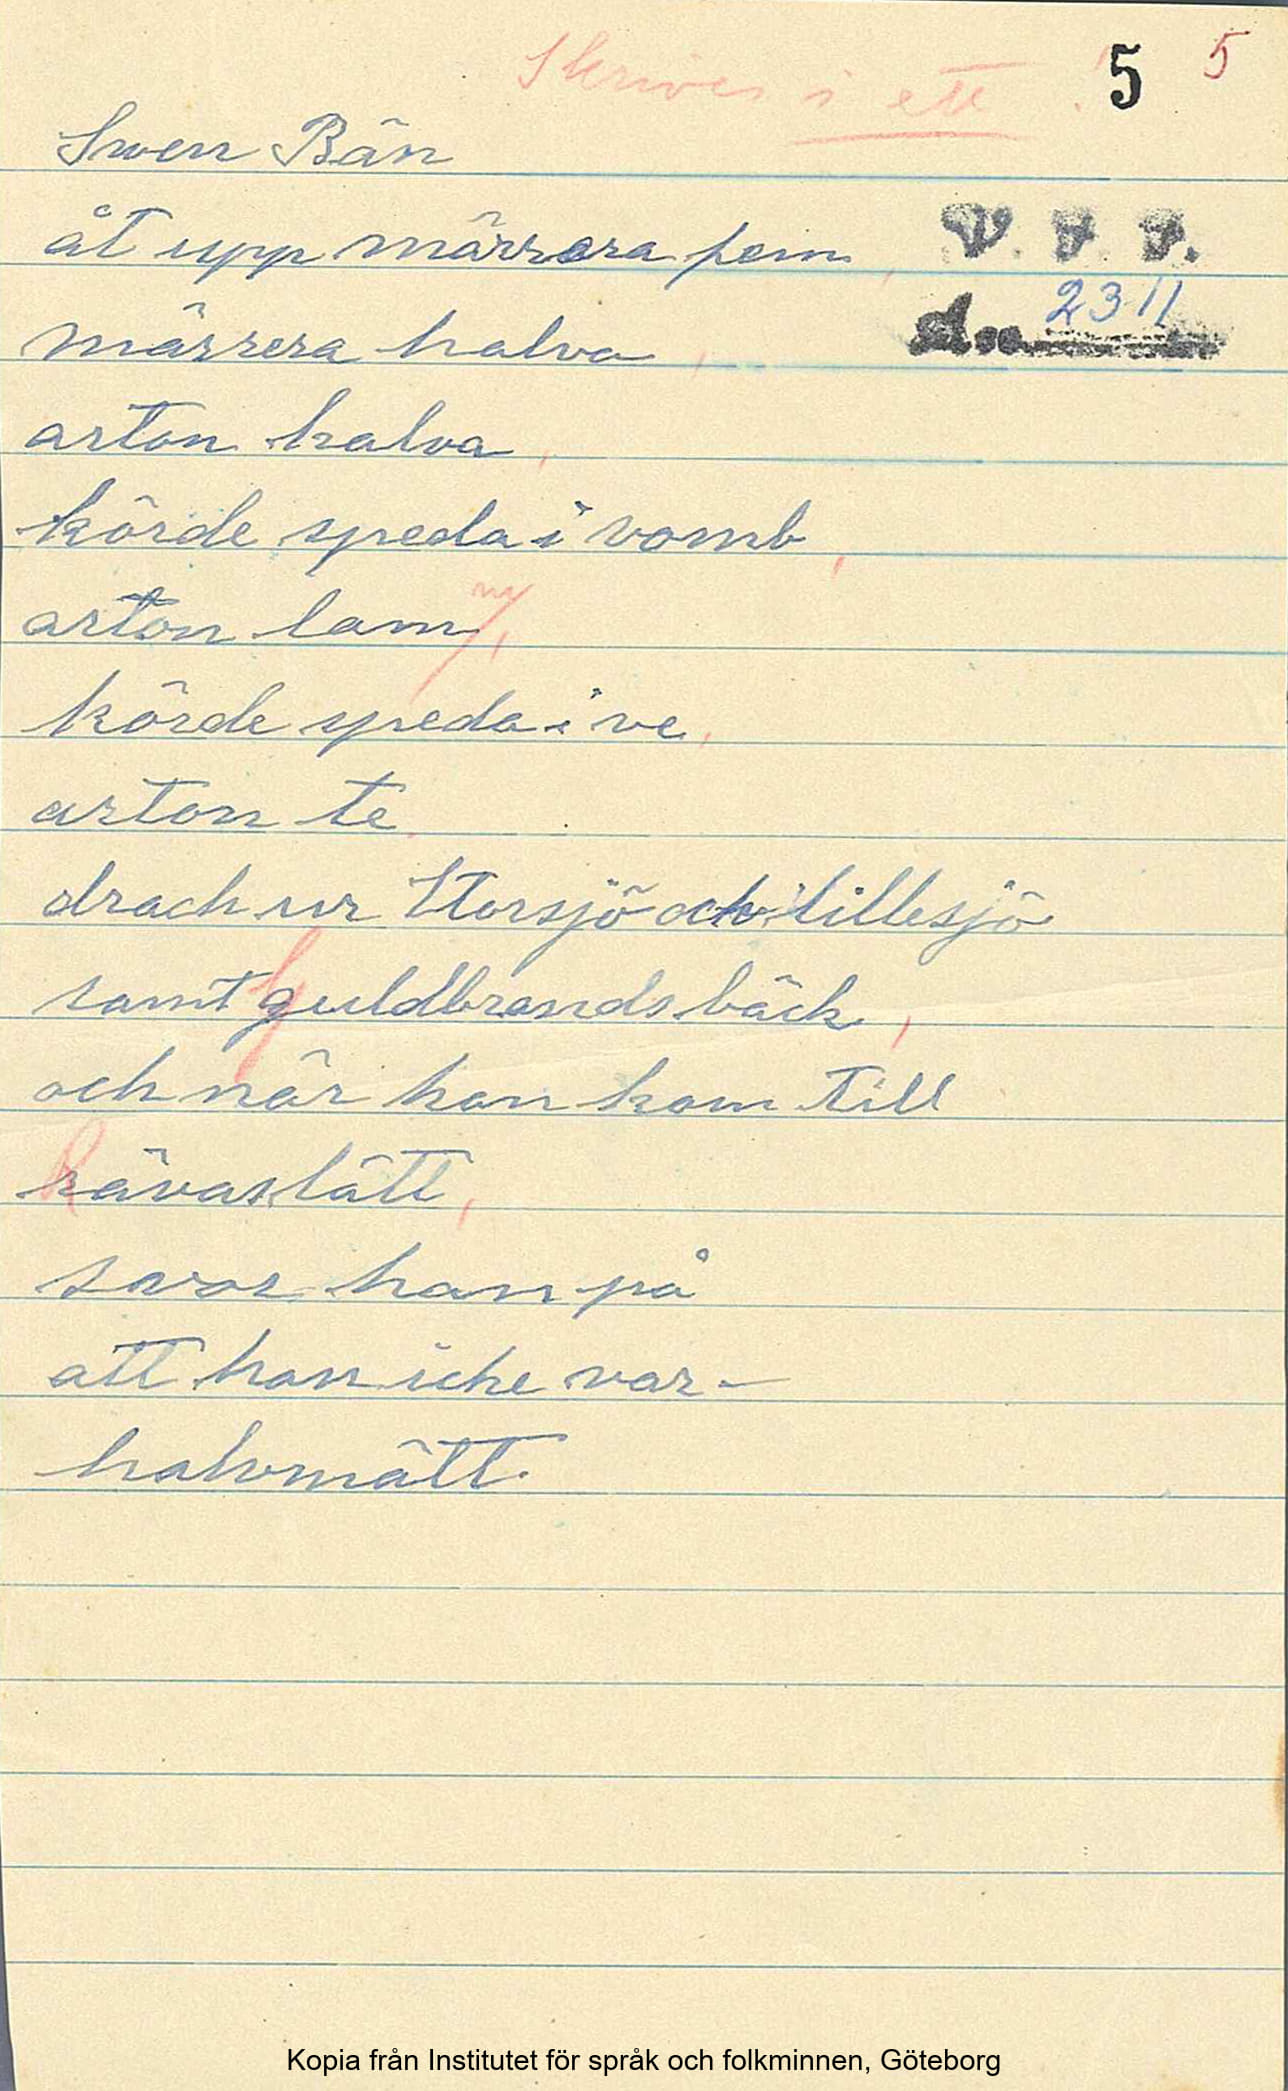 Skrives i ett! 5 5
Swen Bän
åt upp märrera fem,
V. F. F.
2311
märrera halva,
arton kalva,
körde speda i vomb,
arton lam m/,
körde speda i ve,
arton te,
drack ur Storsjö och lillesjö
samt Guldbrands bäck,
och när han kom till
Rävaslätt,
svor han på
att han icke var –
halvmätt.
Kopia från Institutet för språk och folkminnen, Göteborg